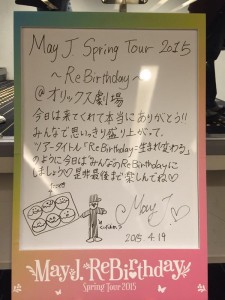 May J. Spring Tour 2015
~ReBirthday~
@オリックス劇場
今日は来てくれて本当にありがとう!!
みんなで思いっきり盛り上がって、
ツアータイトル「ReBirthday=生まれ変わる」
のように今日は"みんなのReBirthday"に
しましょう♡是非最後まで楽しんでね♡
May J.♡
2015.4.19
May J. ReBirthday
Spring Tour 2015